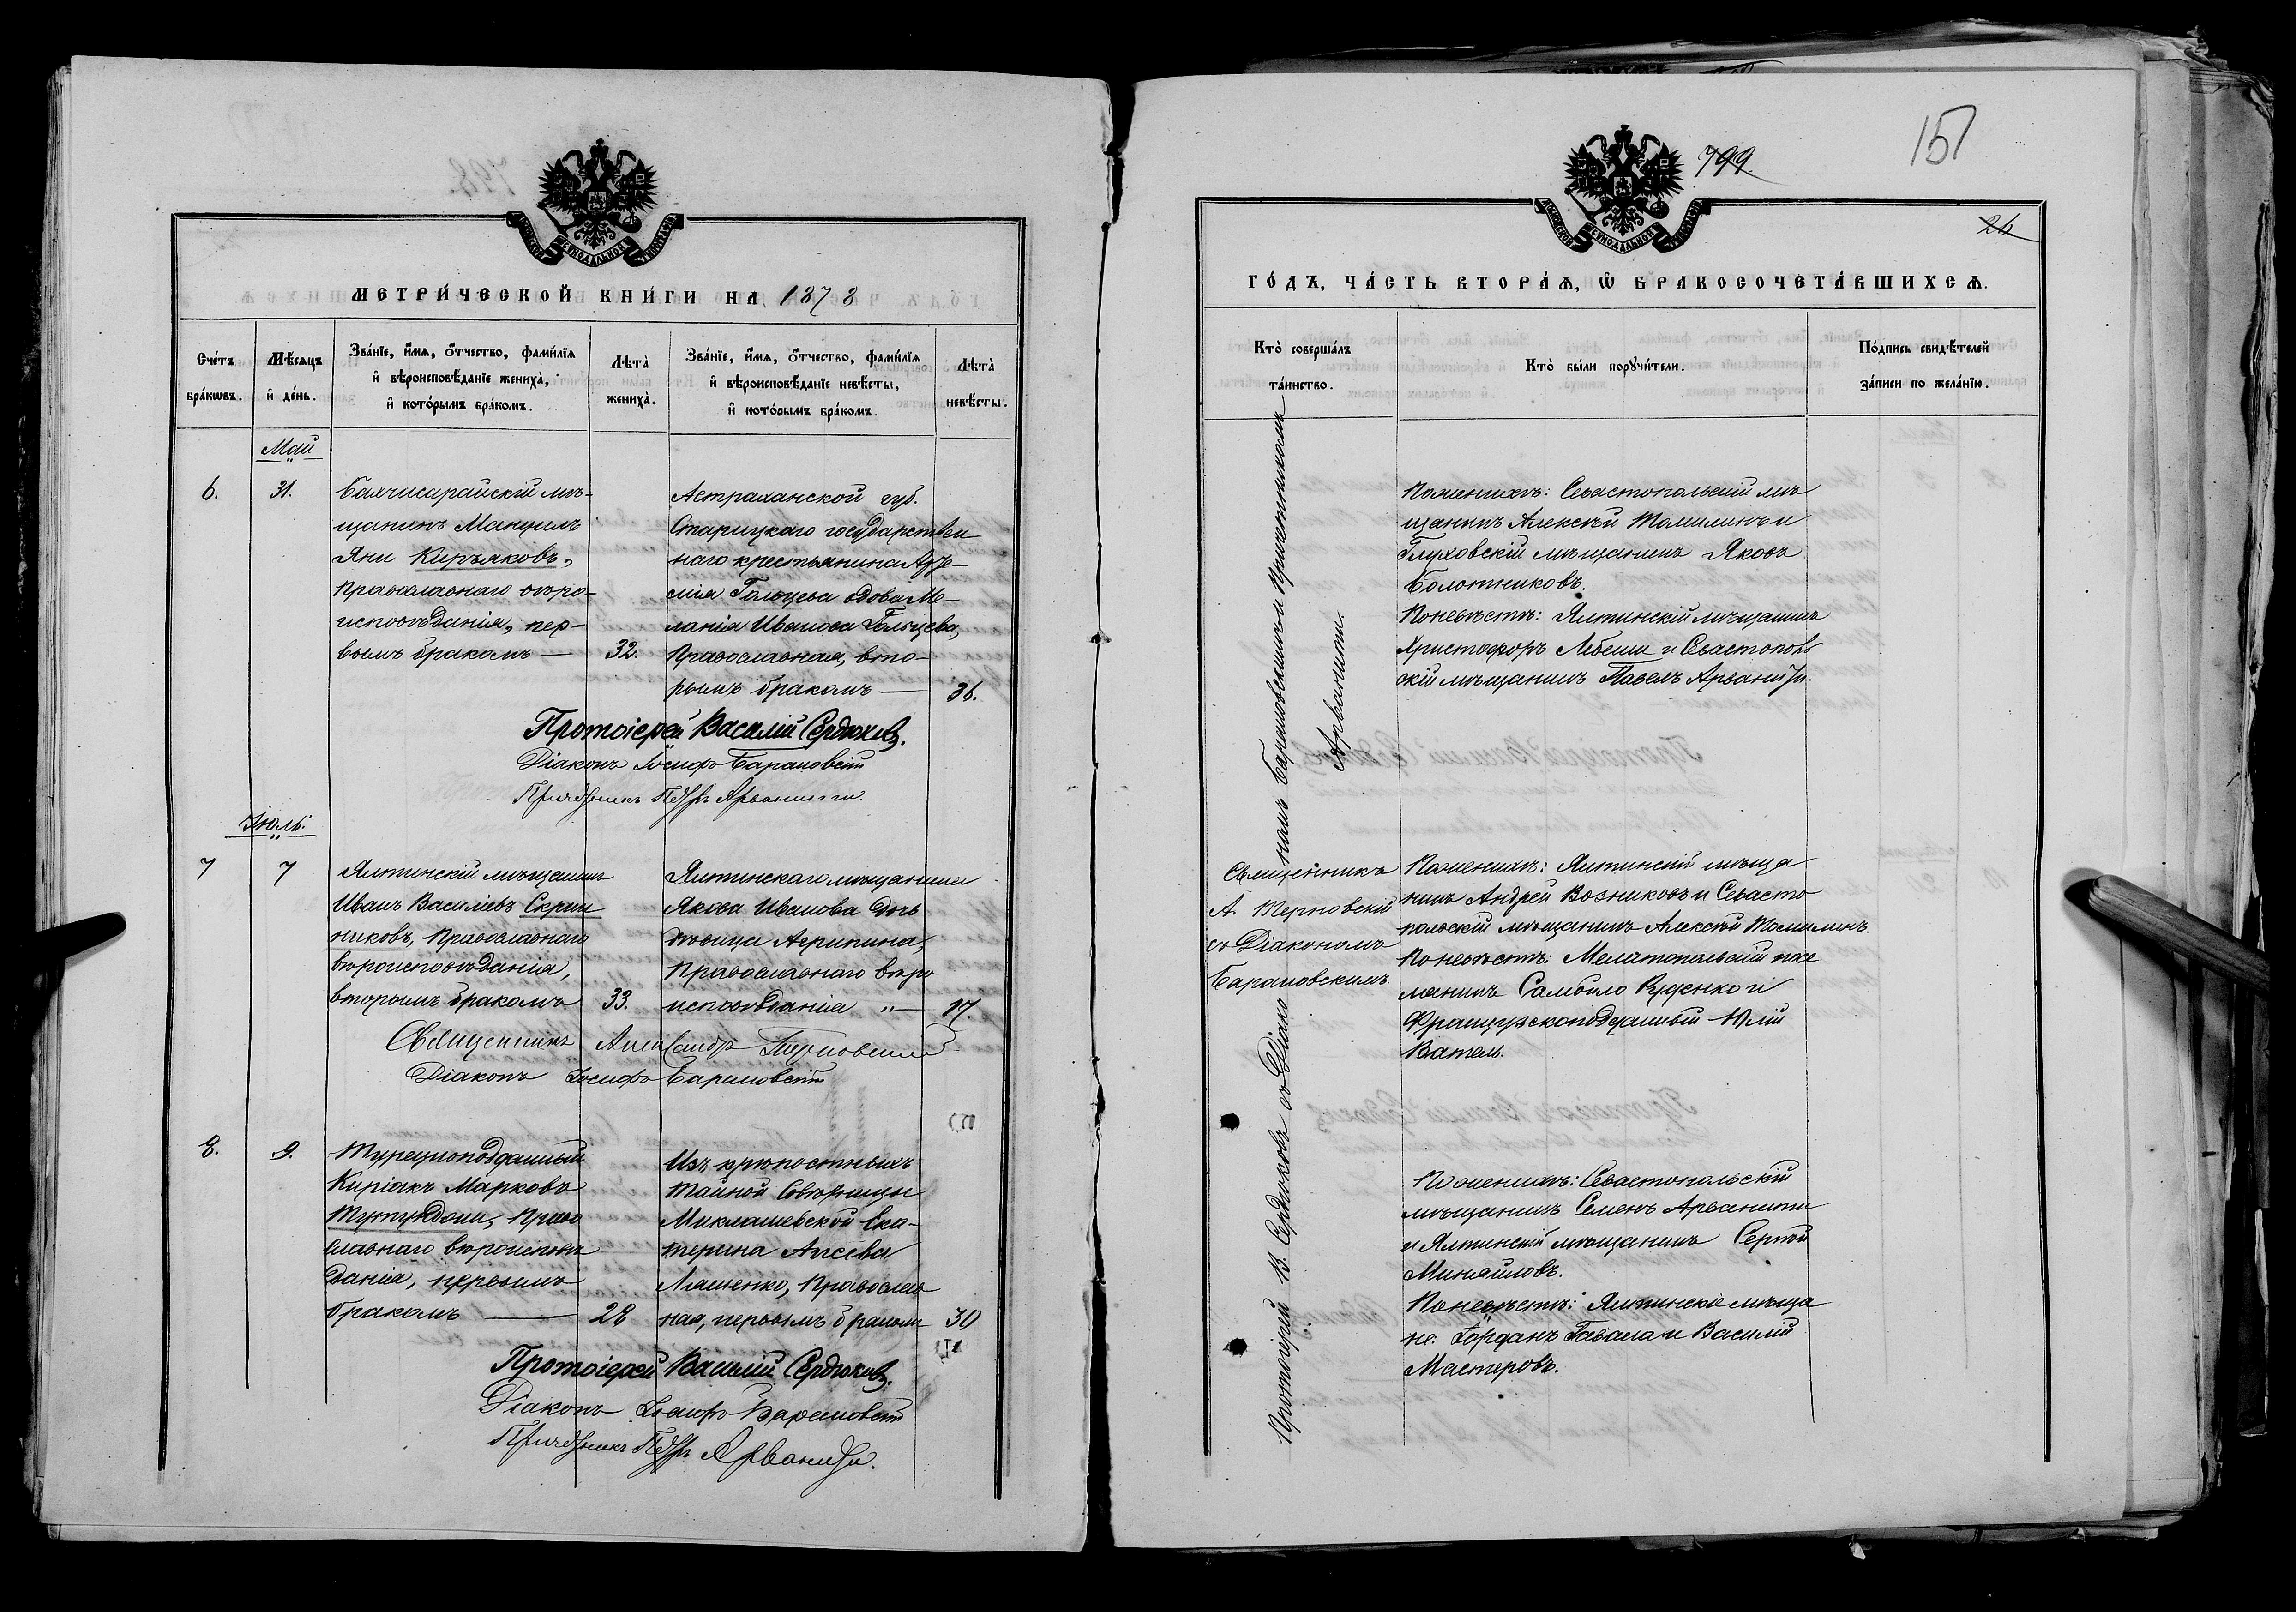 799.
151
26
МОСКОВСКОЙ СѴНОДАЛЬНОЙ ТИПОГРАФІИ
МЕТРИ́ЧЕСКОЙ КНИ́ГИ НА 1878
Сче́тъ бра́кѡвъ.
Мѣ́сяцъ и҆ де́нь.
Зва́нїе, и҆́мѧ, ѻ҆́тчество, фами́лїѧ
и҆ вѣроисповѣ́данїе жениха̀,
и҆ кото́рымъ бра́комъ.
Лѣ́та̀ жениха̀.
Зва́нїе, и҆́мѧ, ѻ҆́тчество, фами́лїѧ
и҆ вѣроисповѣ́данїе невѣ́сты,
и҆ кото́рымъ бра́комъ.
Лѣ́та̀ невѣ́сты.
Май
6.
31.
Бахчисарайскій мѣ-
щанинъ Мануилъ
Яни Кирьяковъ,
Православнаго вѣро-
исповѣданія, пер-
вымъ бракомъ —
32.
Астраханской губ.
Старицкаго государствен
наго крестьянина
Гольцева вдова Ме-
ланія Иванова Гольцева,
Православная, вто-
рымъ бракомъ —
36.
Протоіерей Василій Сердюковъ.
Діаконъ Іосифъ Барановскій
Причетникъ Петръ Арванити.
Іюль.
7
7
Ялтинскій мѣщанинъ
Иванъ Василіевъ Скрип
никовъ, Православнаго
вѣроисповѣданія,
вторымъ бракомъ
33.
Ялтинскаго мѣщанина
Якова Иванова дочь
дѣвица Агрипина,
Православнаго вѣро
исповѣданія „ —
17.
Священникъ Александръ Терновскій
Діаконъ Іосифъ Барановскій
8.
9.
Турецкоподданный
Киріакъ Марковъ
Право
славнаго вѣроисповѣ
данія, первымъ
бракомъ —
28
Изъ крѣпостныхъ
тайной Совѣтницы
Миклашевской Ека-
терина
Ляшенко, Православ
ная, первымъ бракомъ
30
Протоіерей Василій Сердюковъ.
Діаконъ Іосифъ Барановскій
Причетникъ Петръ Арванити.
МОСКОВСКОЙ СѴНОДАЛЬНОЙ ТИПОГРАФІИ
ГО́ДЪ, ЧА́СТЬ ВТОРА́Ѧ, Ѡ҆ БРАКОСОЧЕТА́ВШИХСѦ.
Кто̀ соверша́лъ
та́инство.
Кто̀ бы́ли порꙋчи́тели.
По́дпись свидѣ́телей
за́писи по жела́нїю.
Протоіерей В. Сердюковъ съ Діакономъ Барановскимъ и Причетникомъ
Арванити.
По женихѣ: Севастопольскій мѣ
щанинъ Алексѣй Томилинъ и
Глуховскій мѣщанинъ Яковъ
Болотниковъ.
По невѣстѣ: Ялтинскій мѣщанинъ
Христофоръ Лебеши и Севастополь
скій мѣщанинъ Павелъ Арванити.
Священникъ
А. Терновскій
съ Діакономъ
Барановскимъ
По женихѣ: Ялтинскій мѣща
нинъ Андрей Возниковъ и Севасто
польскій мѣщанинъ Алексѣй Томилинъ.
По невѣстѣ: Мелитопольскій посе
лянинъ Самойло Руденко и
Французскоподданный Юлій
Ватель.
По женихѣ: Севастопольскій
мѣщанинъ Семенъ Арванити
и Ялтинскій мѣщанинъ Сергѣй
Михайловъ.
По невѣстѣ: Ялтинскіе мѣща
не: Іорданъ Гавала и Василій
Мастеровъ.